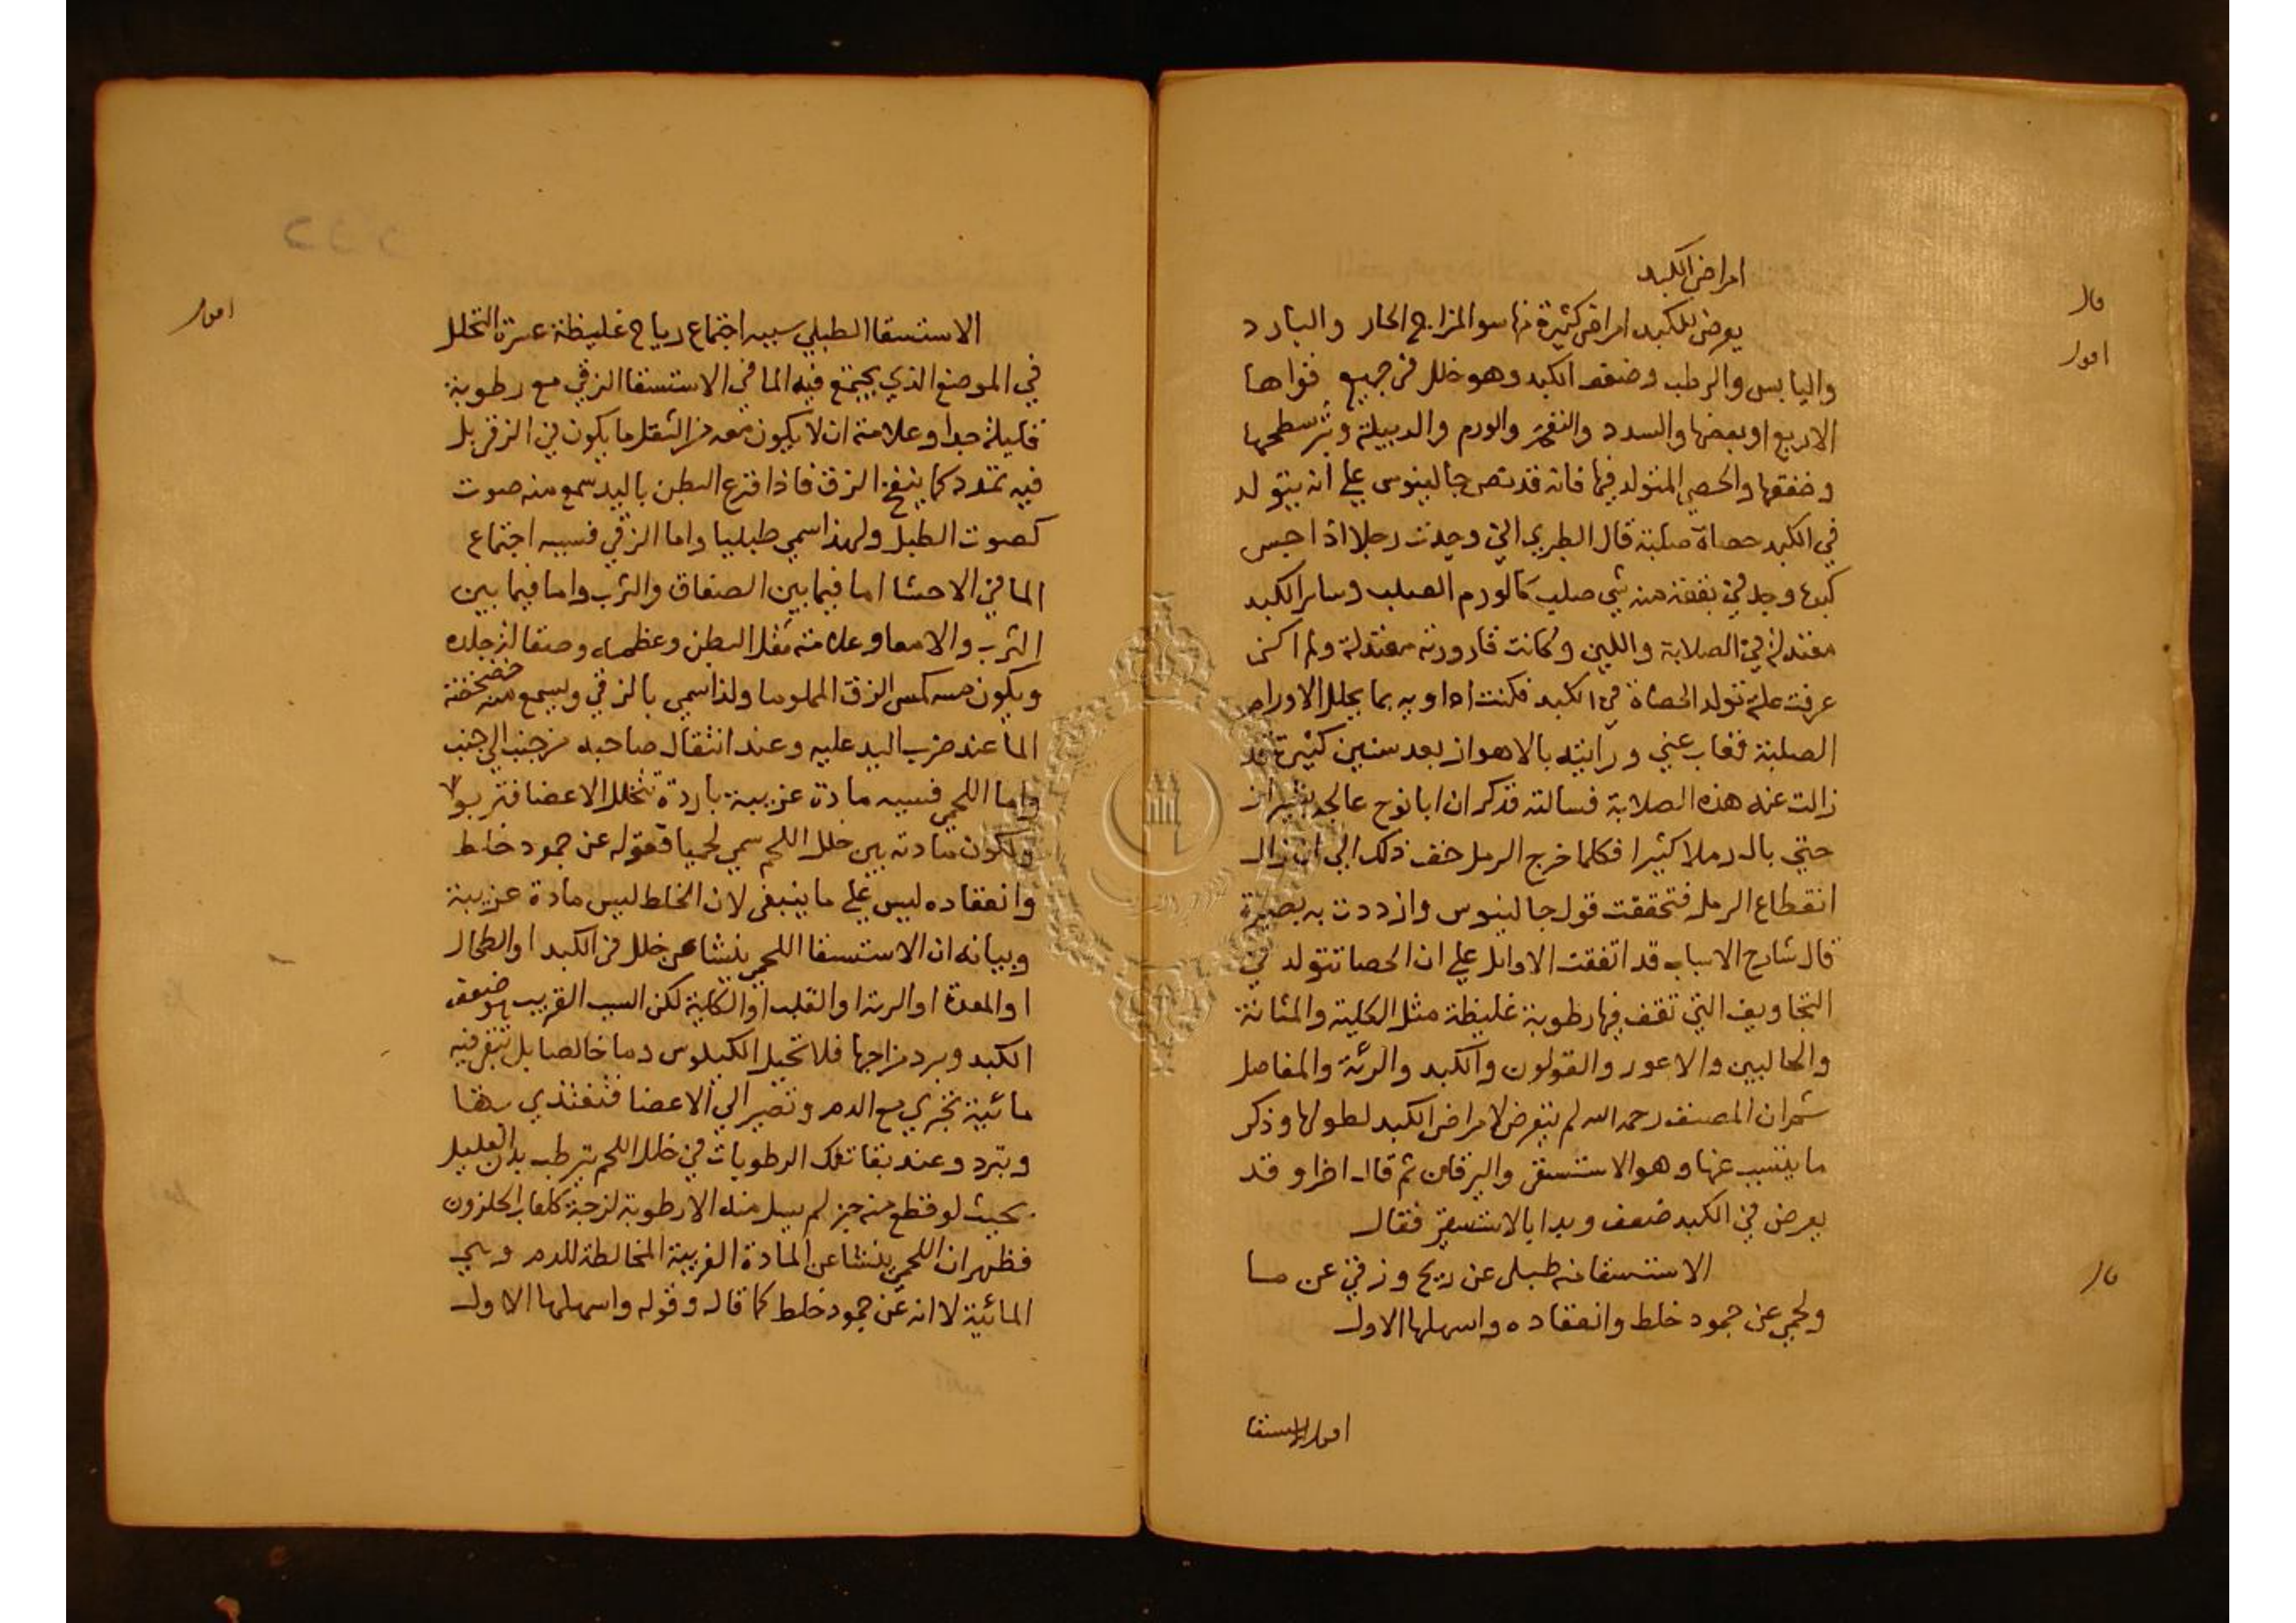 قال
امراض الكبد
اقول
يعرض للكبد امراض كثيرة منها سو المزاج الحار والبارد
واليابس والرطب وضعف الكبد وهو خلل في جميع قواها
الاربع او بعضها والسدد والنفخ والورم والدبيلة وبثر سطحها
وضغفها والحصي المتولد فيها فانه قد نص جالينوس علي انه يتولد
في الكبد حصاة صلبة قال الطبري اني وجدت رجلا اذا جس
كبدها وجد في بقعة منه شي صلب كالورم الصلب وساير الكبد
معتدلة في الصلابة واللين وكانت قارورته معتدلة ولم اكن
عرفت علة تولد الحصاة في الكبد فكنت اداويه بما يحلل الاورام
الصلبة فغاب عني ورايته بالاهواز بعد سنين كثيرة وقد
زالت عنه هذه الصلابة فسالته فذكر ان ابا نوح عالجه بشيراز
حتي بال رملا كثيرا فكلما خرج الرمل خف ذلك الي ان زال
انقطاع الرمل فتحققت قول جالينوس وازددت به بصيرة
قال شارح الاسباب قد اتفقت الاوايل علي ان الحصا تتولد في
التجاويف التي تقف فيها رطوبة غليظة مثل الكلية والمثانة
والحالبين والاعور والقولون والكبد والرئة والمفاصل
ثم ان المصنف رحمه الله لم يتعرض لامراض الكبد لطولها وذكر
ما يتسبب عنها وهو الاستسقى واليرقان ثم قال اخرا وقد
يعرض في الكبد ضعف وبدا بالاستسقي فقال
قال
الاستسقا منه طبلي عن ريح وزقي عن ما
ولحمي عن جمود خلط وانعقاده واسهلها الاول
اقول الاستسقا
اقول
الاستسقا الطبلي سببه اجتماع رياح غليظة عسرة التحلل
في الموضع الذي يجتمع فيه الما في الاستسقا الزقي مع رطوبة
قليلة جدا وعلامته ان لا يكون معه من الثقل ما يكون في الزقي بل
فيه تمدد كما ينفخ الزق فاذا قرع البطن باليد سمع منه صوت
كصوت الطبل ولهذا سمي طبليا واما الزقي فسببه اجتماع
الما في الاحشا اما فيما بين الصفاق والثرب واما فيما بين
الثرب والامعا وعلامته ثقل البطن وعظمه وصقالة جلده
ويكون مسه كمس الزق المملو ما ولذا سمي بالزقي ويسمع منه خضخضة
الما عند ضرب اليد عليه وعند انتقال صاحبه من جنب الي جنب
واما اللحمي فسببه مادة غريبة باردة تتخلل الاعضا فتربو
ولكون مادته بين خلل اللحم سمي لحميا فقوله عن جمود خلط
وانعقاده ليس علي ما ينبغي لان الخلط ليس مادة غريبة
وبيانه ان الاستسقا اللحمي ينشا عن خلل في الكبد او الطحال
او المعدة او الرئة او القلب او الكلية لكن السبب القريب هو ضعف
الكبد وبرد مزاجها فلا تحيل الكيلوس دما خالصا بل تبقي فيه
مائية تجري مع الدم وتصير الي الاعضا فتغتذي بها
وتبرد وعند بقا تلك الرطوبات في خلل اللحم يترطب بدن العليل
بحيث لو قطع منه جزء لم يسل منه الا رطوبة لزجة كلعاب الحلزون
فظهر ان اللحمي ينشا عن المادة الغريبة المخالطة للدم وهي
المائية لا انه عن جمود خلط كما قال وقوله واسهلها الاول